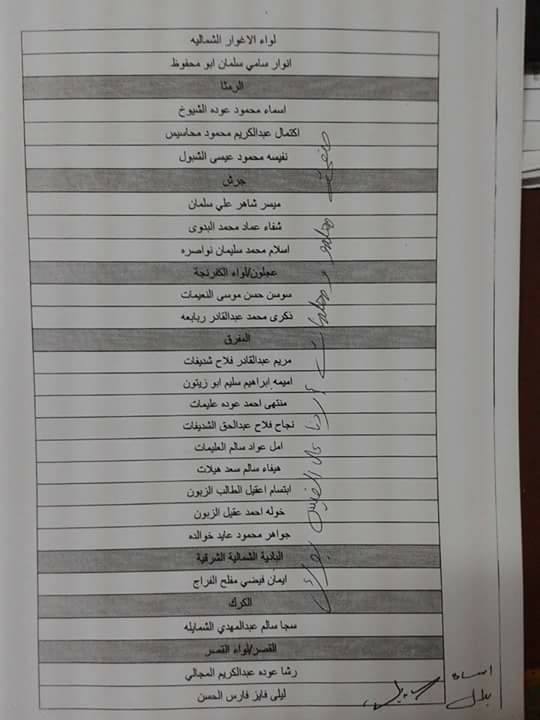 لواء الاغوار الشماليه
انوار سامي سلمان ابو محفوظ
الرمثا
اسماء محمود عوده الشيوخ
اكتمال عبدالكريم محمود محاسيس
نفيسه محمود عيسى الشبول
جرش
ميسر شاهر علي سلمان
شفاء عماد محمد البدوى
اسلام محمد سليمان نواصره
عجلون/لواء الكفرنجة
سوسن حسن موسى النعيمات
ذكرى محمد عبدالقادر ربابعه
المفرق
مريم عبدالقادر فلاح شديفات
اميمه ابراهيم سليم ابو زيتون
منتهى احمد عوده عليمات
نجاح فلاح عبدالحق الشديفات
امل عواد سالم العليمات
هيفاء سالم سعد هيلات
ابتسام اعقيل الطالب الزبون
خوله احمد عقيل الزبون
جواهر محمود عايد خوالده
البادية الشمالية الشرقية
ايمان فيضي مفلح الفراج
الكرك
سجا سالم عبدالمهدي الشمايله
القصر/لواء القصر
رشا عوده عبدالكريم المجالي
ليلى فايز فارس الحسن